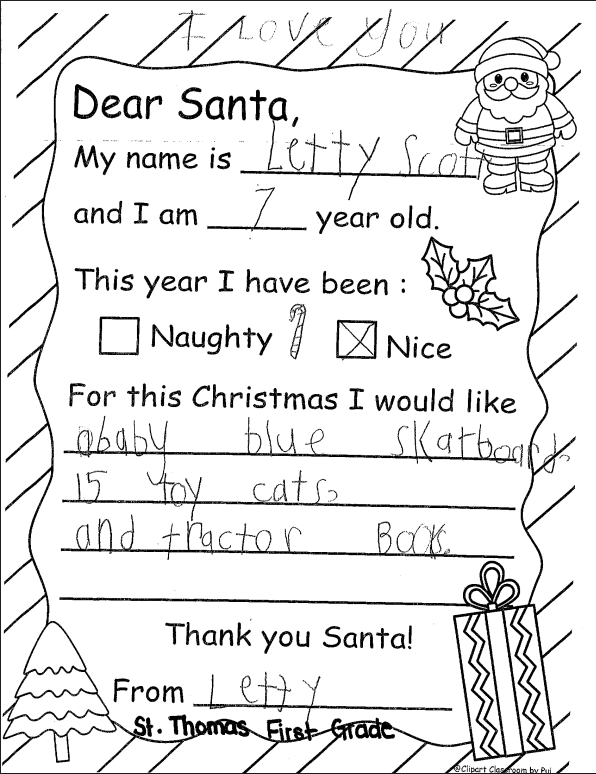 I Love You
Dear Santa,
My name is Letty Scott
and I am 7 year old.
This year I have been :
Naughty Nice
For this Christmas I would like
ababy blue skatboard.
15 toy cats.
and tractor Books.
Thank you Santa!
From Letty
St. Thomas First Grade
@Clipart Classroom by Pui